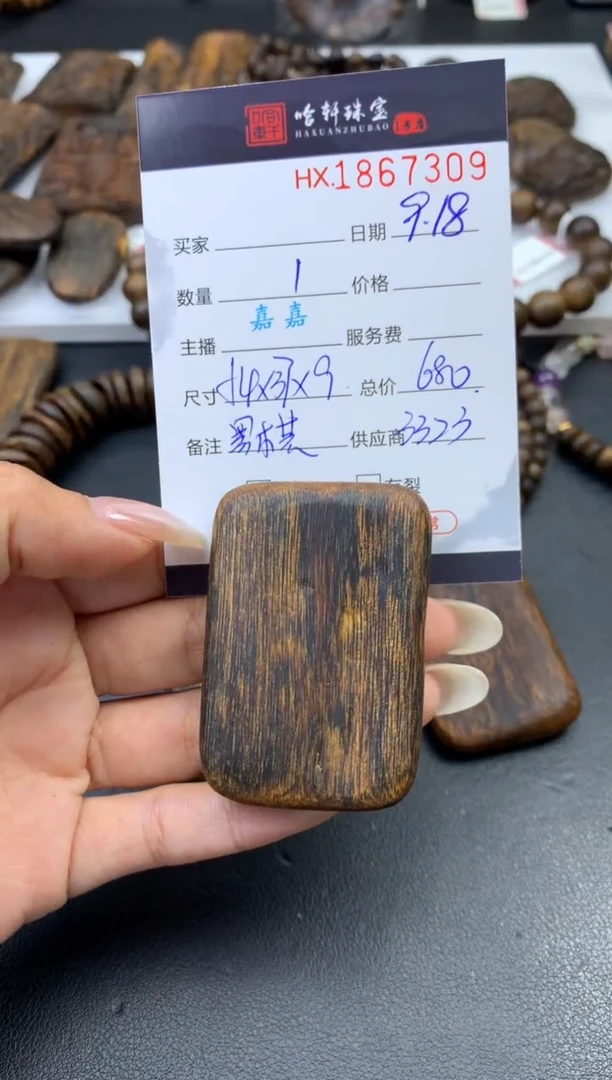 哈轩珠宝
HAXUANZHUBAO
HX.1867309
买家 日期 9.18
数量 1 价格
嘉嘉
主播 服务费
尺寸 54x37x9 总价 680.
备注 供应商 3323
有裂